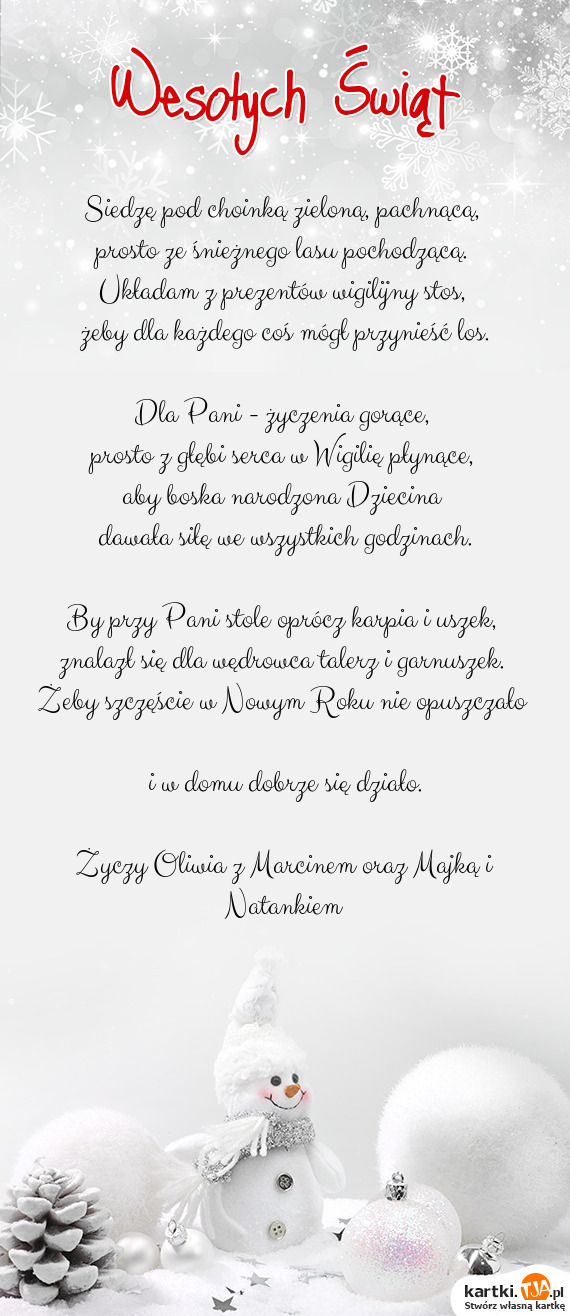 Wesołych Świąt
Siedzę pod choinką zieloną, pachnącą,
prosto ze śnieżnego lasu pochodzącą.
Układam z prezentów wigilijny stos,
żeby dla każdego coś mógł przynieść los.
Dla Pani - życzenia gorące,
prosto z głębi serca w Wigilię płynące,
aby boska narodzona Dziecina
dawała siłę we wszystkich godzinach.
By przy Pani stole oprócz karpia i uszek,
znalazł się dla wędrowca talerz i garnuszek.
Żeby szczęście w Nowym Roku nie opuszczało
i w domu dobrze się działo.
Życzy Oliwia z Marcinem oraz Majką i
Natankiem
kartki.TJA.pl
Stwórz własną kartkę